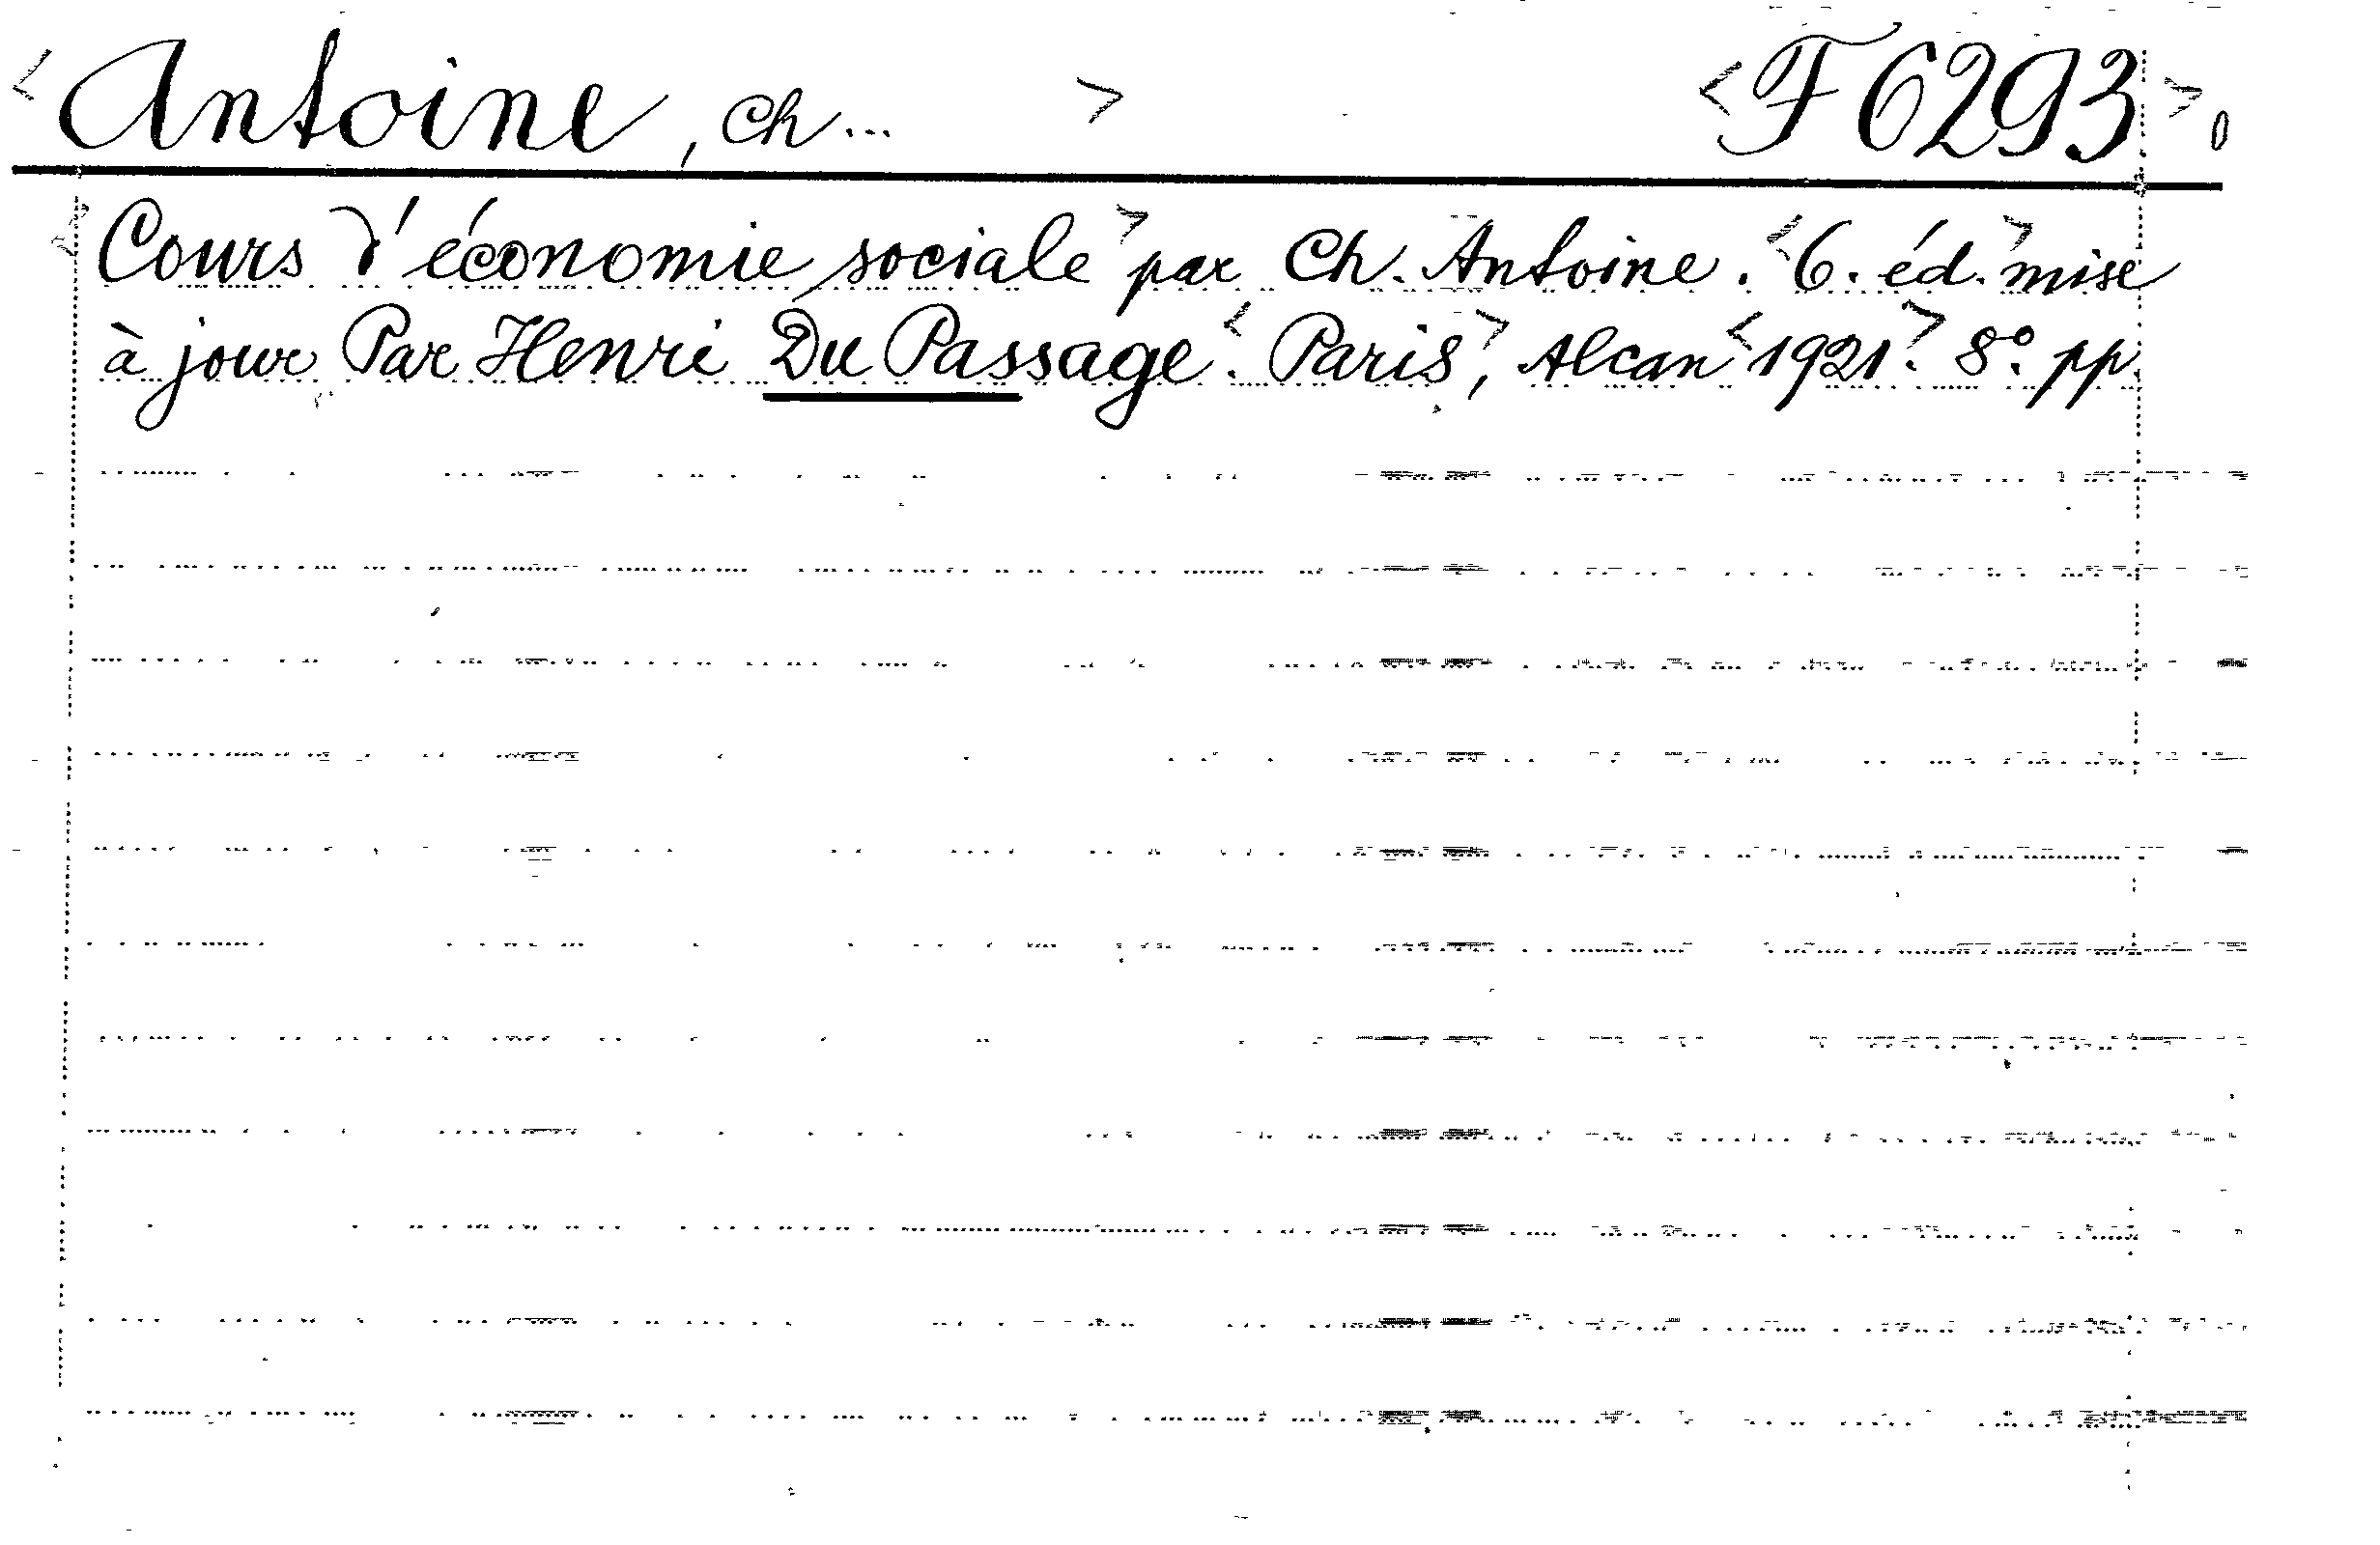 <Antoine, Ch... > <F 6293>0
<Cours d'économie sociale> par Ch. Antoine. <6. éd.> mise
à jour Par Henri Du Passage. <Paris>, Alcan <1921>. 8°. pp.